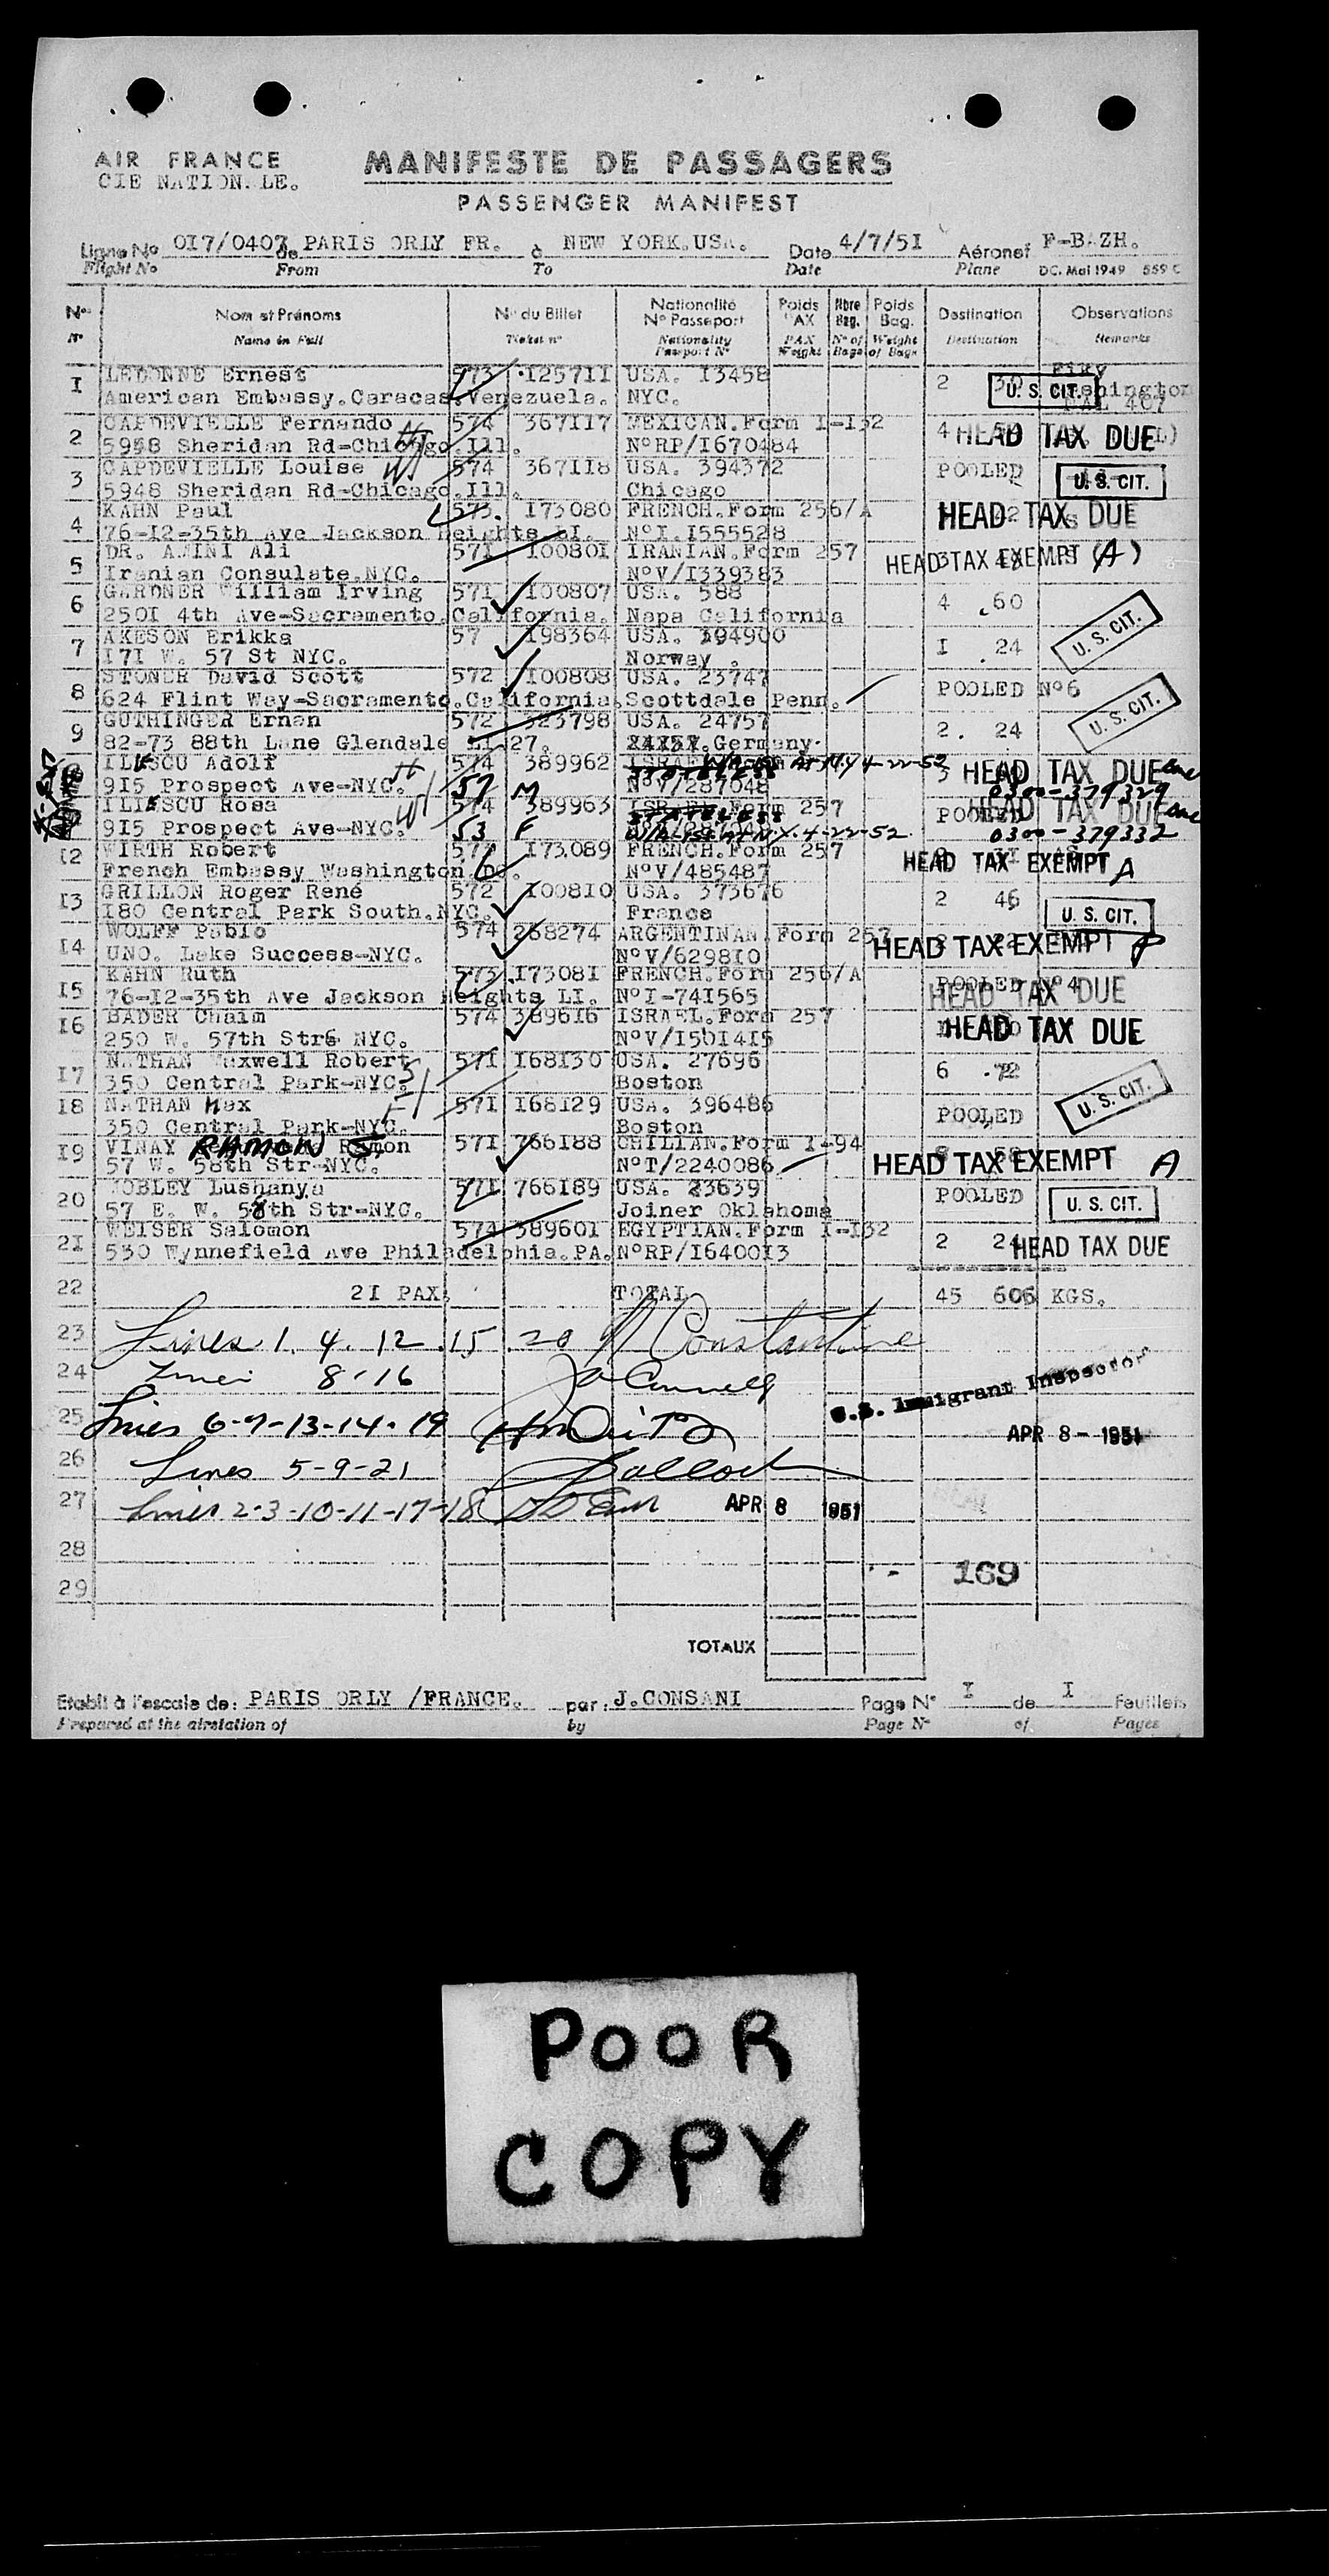 AIR FRANCE
CIE NATION.LE.
MANIFESTE DE PASSAGERS
PASSENGER MANIFEST
Ligne No 017/0407 de PARIS ORLY FR. à NEW YORK.USA. Date 4/7/5I Aéronef F-BAZH.
Flight No From To Date Plane DC. Mai 1949 559 C
Nos Nom et Prénoms No du Billet Nationalité No Passeport Poids PAX Nbre Bag. Poids Bag. Destination Observations
No Name in Full Ticket no Nationality Passport No PAX Weight No of Bags Weight of Bags Destination Remarks
I LEDONNE Ernest 573 125711 USA. I3458 2 30 U. S. CIT.
American Embassy.Caracas.Venezuela. NYC. Washington
2 CAPDEVIELLE Fernando H 574 367117 MEXICAN.Form I-I32 4 HEAD TAX DUE
5948 Sheridan Rd-Chicago.Ill. N°RP/I670484
3 CAPDEVIELLE Louise W 574 367118 USA. 394372 POOLED U. S. CIT.
5948 Sheridan Rd-Chicago.Ill. Chicago
4 KAHN Paul 573. I73080 FRENCH.Form 256/A HEAD TAX DUE
76-I2-35th Ave Jackson Heights LI. N°I.I555528
5 DR. AMINI Ali 571 I00801 IRANIAN.Form 257 HEAD TAX EXEMPT (A)
Iranian Consulate.NYC. N°V/I339383
6 GARDNER William Irving 571 I00807 USA. 588 4 60
250I 4th Ave-Sacramento.California. Napa California
7 AKESON Erikka 57 I98364 USA. I94900 I 24 U. S. CIT.
I7I W. 57 St NYC. Norway .
8 STONER David Scott 572 I00808 USA. 23747 POOLED N°6
624 Flint Way-Sacramento.California. Scottdale Penn. U. S. CIT.
9 GUTHINGER Ernan 572 323798 USA. 24757 2. 24
82-73 88th Lane Glendale LI 27. Germany.
ILIESCU Adolf H 574 389962 ISRAEL STATELESS 4-22-52 HEAD TAX DUE
9I5 Prospect Ave-NYC. 57 M N°V/287048 0300-379329
ILIESCU Rosa W 574 389963 ISRAEL.Form 257 STATELESS POOLED HEAD TAX DUE
9I5 Prospect Ave-NYC. 53 F 4-22-52 0300-379332
I2 WIRTH Robert 571 I73089 FRENCH.Form 257 HEAD TAX EXEMPT A
French Embassy Washington. N°V/485487
I3 GRILLON Roger René 572 I00810 USA. 373676 2 46
I80 Central Park South.NYC. France U. S. CIT.
I4 WOLFF Pablo 574 268274 ARGENTINAN.Form 257 HEAD TAX EXEMPT
UNO. Lake Success-NYC. N°V/629810
I5 KAHN Ruth 573 I7308I FRENCH.Form 256/A POOLED N°4 HEAD TAX DUE
76-I2-35th Ave Jackson Heights LI. N°I-74I565
I6 BADER Chaim 574 389616 ISRAEL.Form 257 HEAD TAX DUE
250 W. 57th Str NYC. N°V/I50I4I5
I7 NATHAN Maxwell Robert 57I I68I30 USA. 27696 6 .72
350 Central Park-NYC. Boston
I8 NATHAN Max 57I I68I29 USA. 396486 POOLED U. S. CIT.
350 Central Park-NYC. Boston
I9 VINAY RAMON S. Ramon 57I 766188 CHILIAN.Form I-94
57 W. 58th Str-NYC. N°T/2240086 HEAD TAX EXEMPT A
20 MOBLEY Lushanya 57I 766189 USA. 23639 POOLED U. S. CIT.
57 E. W. 58th Str-NYC. Joiner Oklahoma
2I WEISER Salomon 574 389601 EGYPTIAN.Form I-I32 2 24 HEAD TAX DUE
530 Wynnefield Ave Philadelphia.PA. N°RP/I6400I3
22 2I PAX. TOTAL 45 606 KGS.
23 Lines 1. 4. 12. 15. 20 Constantine
24 Lines 8-16
U.S. Immigrant Inspector
25 Lines 6-7-13-14-19 APR 8- 1951
26 Lines 5-9-21
27 Lines 2-3-10-11-17-18 APR 8 1951
28
169
29
TOTAUX
Etabli à l'escale de: PARIS ORLY /FRANCE. par: J.CONSANI Page No I de I feuillets
Prepared at the airstation of by Page No of Pages
POOR
COPY